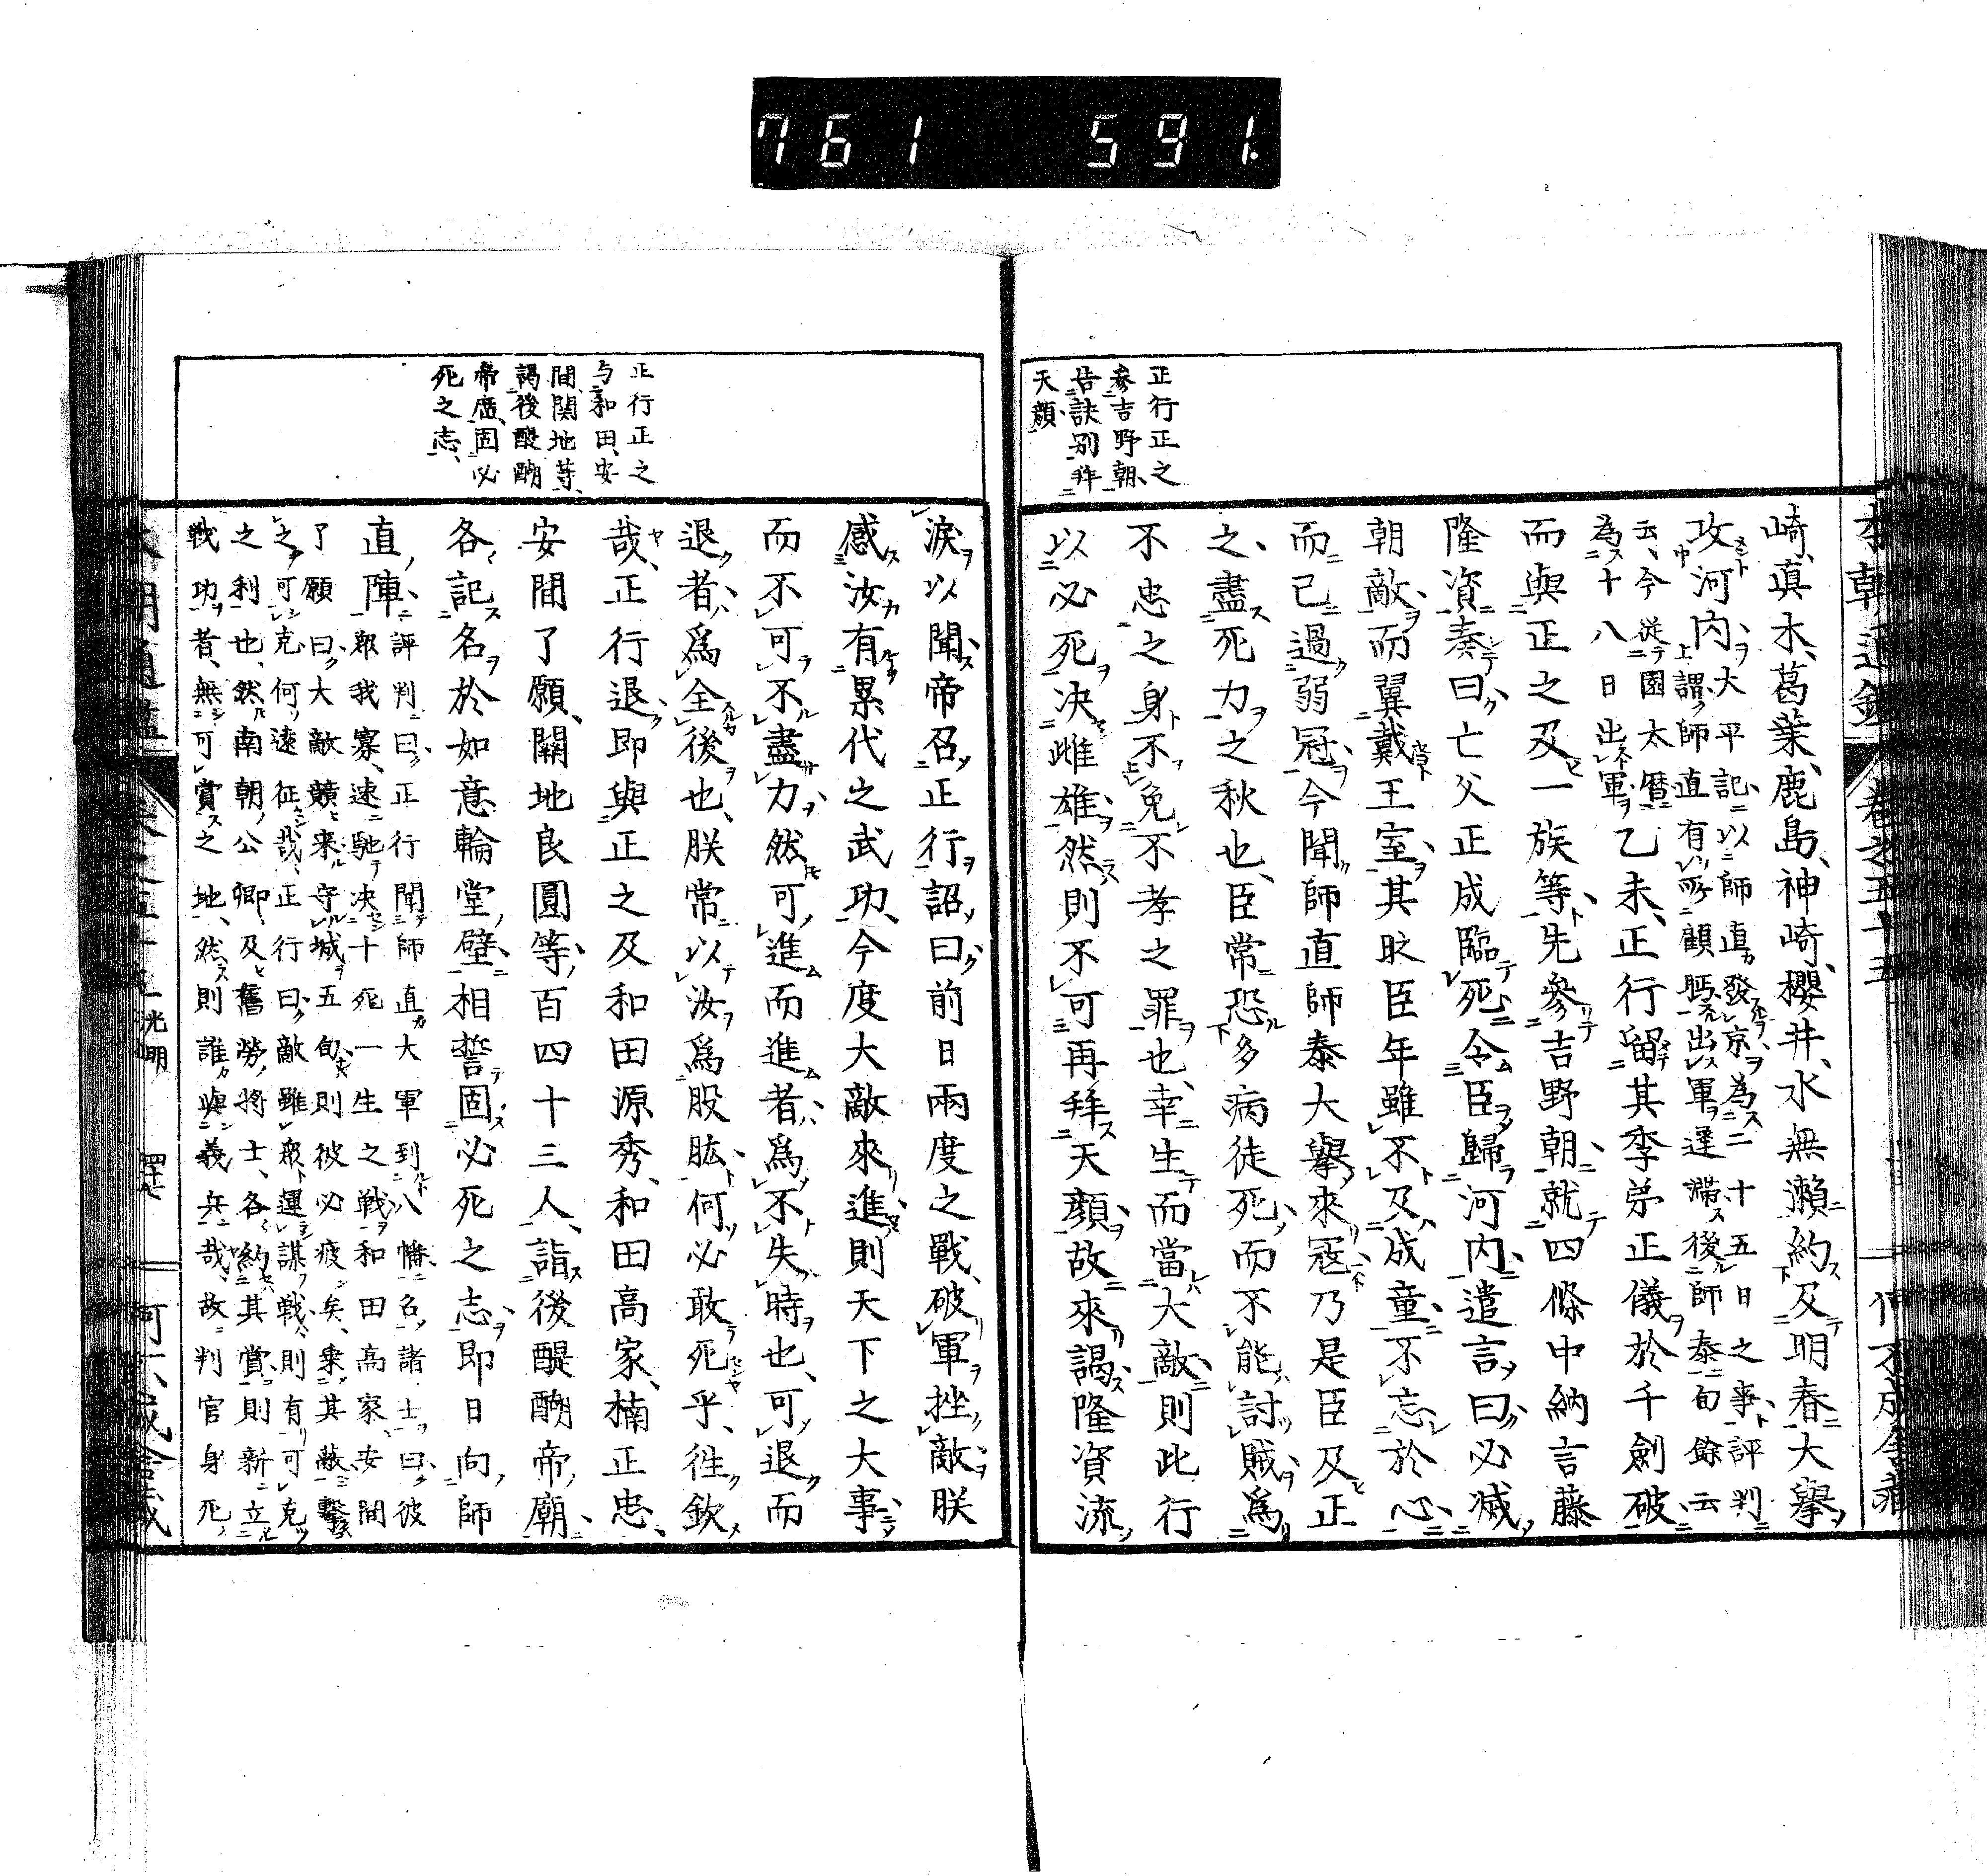 761 591.
正行正之
参吉野朝
告訣別拜
天顔
崎、真木、葛葉、鹿島、神崎、櫻井、水無瀬約及明春大擧
攻河内大平記以師直發京為二十五日之事評判
謂師直有所顧眄出軍遲滯後師泰旬餘云
云、今從園太暦
為十八日出軍乙未、正行留其季弟正儀於千劍破
而與正之及一族等先參吉野朝就四條中納言藤
隆資奏曰亡父正成臨死令臣歸河内遣言曰必滅
朝敵而翼戴王室其时臣年雖不及成童不忘於心
而已過弱冠今聞師直師泰大擧來冦乃是臣及正
之盡死力之秋也、臣常恐多病徒死而不能討賊爲
不忠之身不免不孝之罪也、幸生而當大敵則此行
以必死决雌雄然則不可再拜天顔故來謁隆資流
正行正之
与和田、安
間関地等、
謁後醍醐
帝廣固必
死之志、
淚以聞帝召正行詔曰前日兩度之戰、破軍挫敵朕
感汝有累代之武功、今度大敵來進則天下之大事
而不可不盡力然可進而進者爲不失時也、可退而
退者爲全後也、朕常以汝爲股肱何必敢死乎、徃欽
哉、正行退即與正之及和田源秀、和田高家、楠正忠、
安間了願、關地良圓等百四十三人、詣後醍醐帝廟
各記名於如意輪堂壁相誓固必死之志即日向師
直陣評判曰正行聞師直大軍到八幡召諸士曰彼
衆我寡、速馳决十死一生之戰和田高家、安間
了願曰大敵競来守城五旬則彼必疲矣、乗其敵撃
之可克何遠征哉、正行曰敵雖衆運謀戰則有可克
之利也、然南朝公卿、及舊勞将士、各約其賞則新立
戰功者、無可賞之地、然則誰與義兵哉、故判官身死
光明
四十七